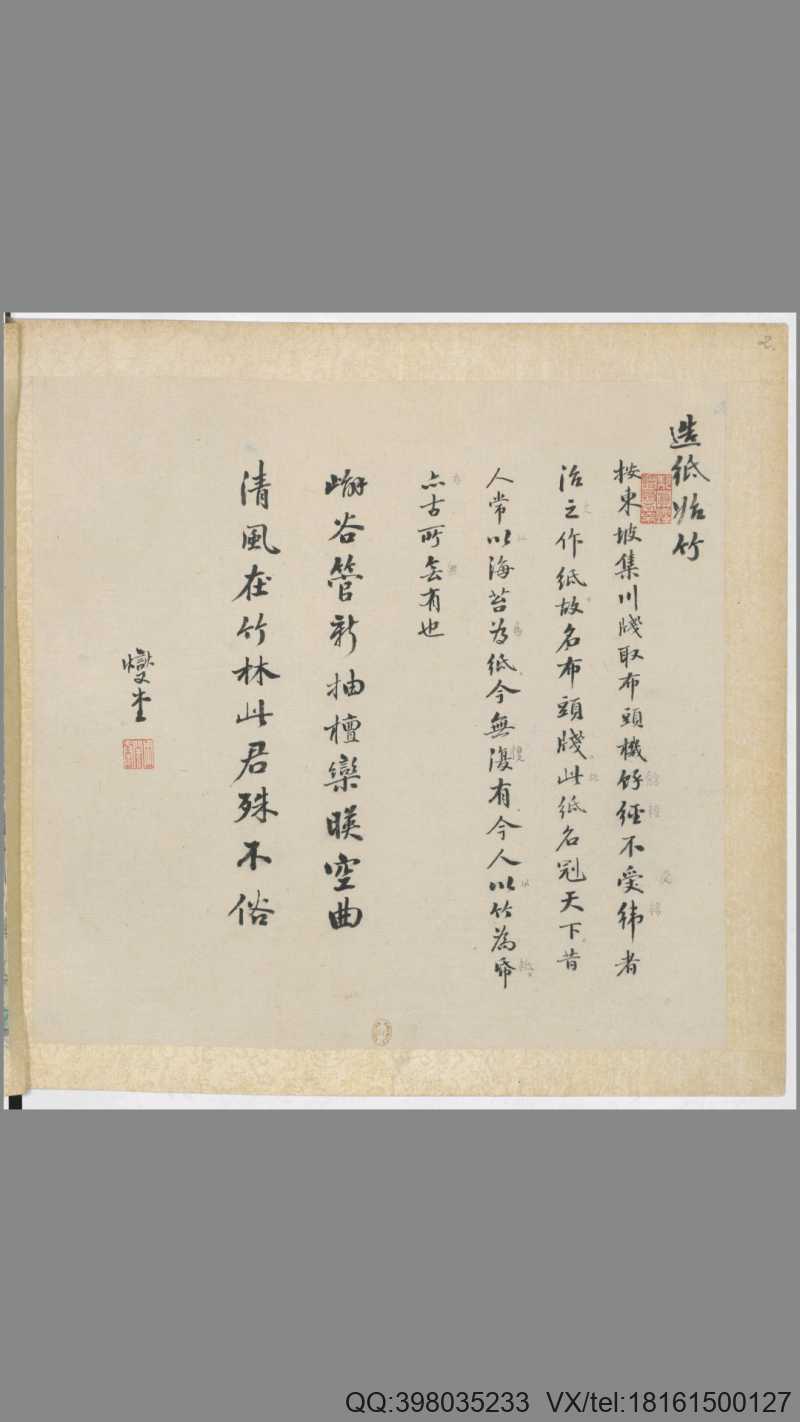 造紙㳂竹
按東坡集川牋取布頭機餘經不受緯者
治之作紙故名布頭牋此紙名冠天下昔
人常以海苔為紙今無復有今人以竹為帋
亦古所無有也
嶰谷管新抽檀欒暎空曲
清風在竹林此君殊不俗
燮堂
2.
QQ:398035233 VX/tel:18161500127